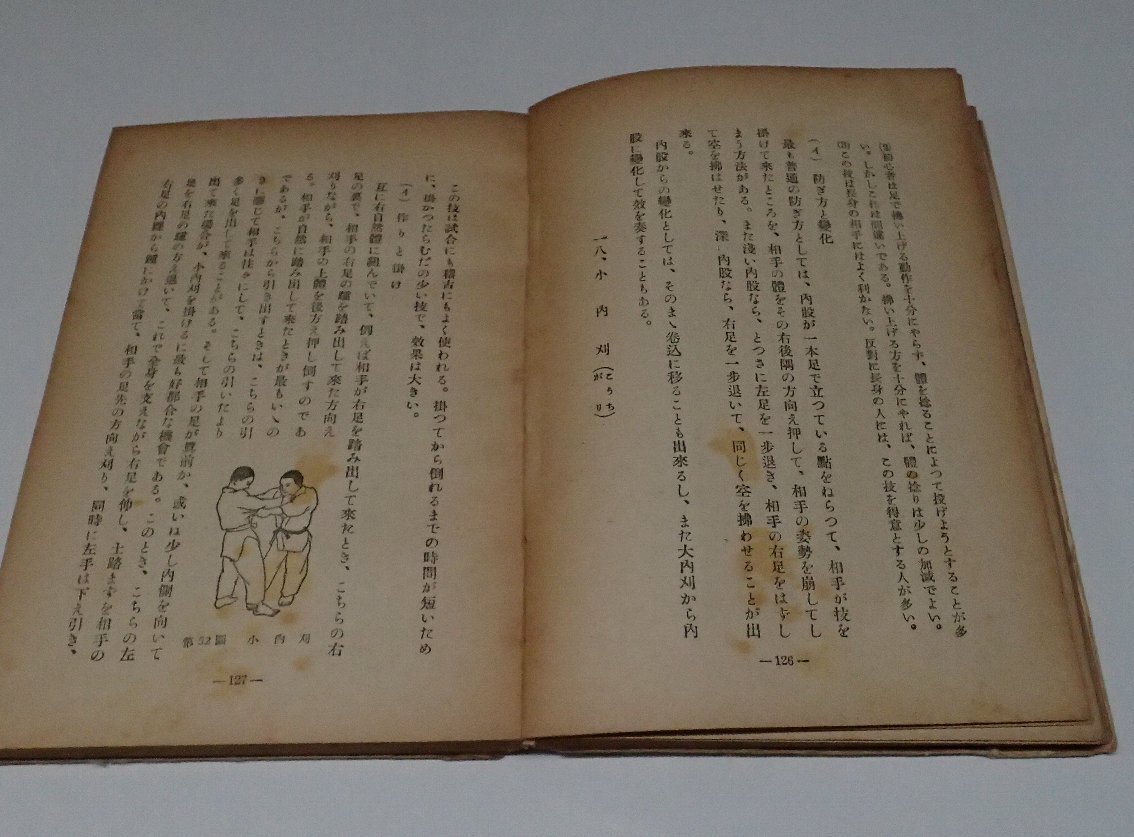 ⑵初心者は足で拂い上げる動作を十分にやらず、體を捻ることによつて投げようとすることが多
い。しかしこれは間違いである。拂い上げる方を十分にやれば、體の捻りは少しの加減でよい。
⑶この技は長身の相手にはよく利かない。反對に長身の人には、この技を得意とする人が多い。
(イ) 防ぎ方と變化
最も普通の防ぎ方としては、內股が一本足で立つている點をねらつて、相手が技を
掛けて來たところを、相手の體をその右後隅の方向え押して、相手の姿勢を崩してし
まう方法がある。また淺い內股なら、とつさに左足を一步退き、相手の右足をはずし
て空を拂はせたり、深い內股なら、右足を一步退いて、同じく空を拂わせることが出
來る。
內股からの變化としては、そのまゝ卷込に移ることも出來るし、また大內刈から內
股に變化して效を奏することもある。
一八、小內刈(こうちがり)
—126—
この技は試合にも稽古にもよく使われる。掛つてから倒れるまでの時間が短いため
に、掛かつたらむだの少い技で、效果は大きい。
(イ) 作りと掛け
互に右自然體に組んでいて、例えば相手が右足を踏み出して來たとき、こちらの右
足の裏で、相手の右足の踵を踏み出して來た方向え
刈りながら、相手の上體を後方え押し倒すのであ
る。相手が自然に踏み出して來たときが最もいゝの
であるが、こちらから引き出すときは、こちらの引
きに應じて相手は往々にして、こちらの引いたより
多く足を出して來ることがある。そして相手の足が眞前か、或いは少し內側を向いて
出て來た場合が、小內刈を掛けるに最も好都合な機會である。このとき、こちらの左
足を右足の踵の方え退いて、これで全身を支えながら右足を伸し、土踏まずを相手の
右足の內踝から踵にかけて當て、相手の足先の方向え刈り、同時に左手は下え引き、
第52圖 小內刈
—127—